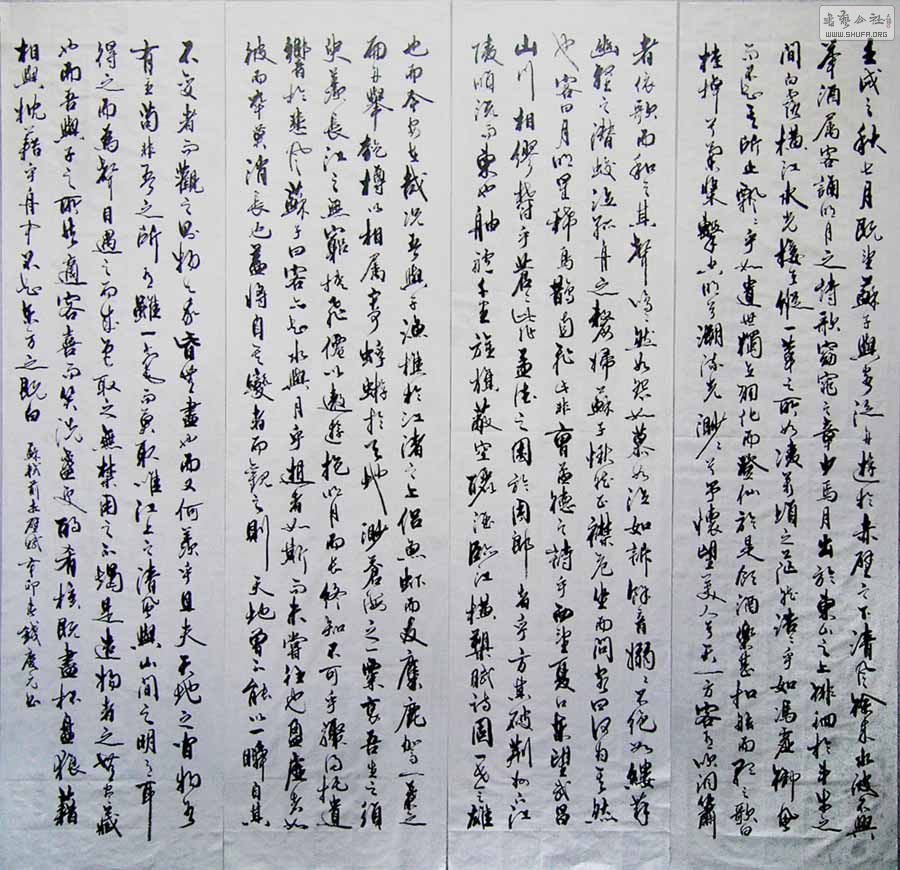 壬戌之秋七月既望蘇子與客泛舟遊於赤壁之下清風徐來水波不興
舉酒屬客誦明月之詩歌窈窕之章少焉月出於東山之上徘徊於斗牛之
間白露橫江水光接天縱一葦之所如凌萬頃之茫然浩浩乎如馮虛御風
而不知其所止飄飄乎如遺世獨立羽化而登仙於是飲酒樂甚扣舷而歌之歌曰
桂棹兮蘭槳擊空明兮溯流光渺渺兮予懷望美人兮天一方客有吹洞簫
者依歌而和之其聲嗚嗚然如怨如慕如泣如訴餘音嫋嫋不絕如縷舞
幽壑之潛蛟泣孤舟之嫠婦蘇子愀然正襟危坐而問客曰何為其然
也客曰月明星稀烏鵲南飛此非曹孟德之詩乎西望夏口東望武昌
山川相繆鬱乎蒼蒼此非孟德之困於周郎者乎方其破荊州下江
陵順流而東也舳艫千里旌旗蔽空釃酒臨江橫槊賦詩固一世之雄
也而今安在哉況吾與子漁樵於江渚之上侶魚蝦而友麋鹿駕一葉之
扁舟舉匏樽以相屬寄蜉蝣於天地渺蒼海之一粟哀吾生之須
臾羨長江之無窮挾飛僊以遨遊抱明月而長終知不可乎驟得托遺
響於悲風蘇子曰客亦知水與月乎逝者如斯而未嘗往也盈虛者如
彼而卒莫消長也蓋將自其變者而觀之則天地曾不能以一瞬自其
不變者而觀之則物與我皆無盡也而又何羨乎且夫天地之間物各
有主苟非吾之所有雖一毫而莫取唯江上之清風與山間之明月耳
得之而為聲目遇之而成色取之無禁用之不竭是造物者之無盡藏
也而吾與子之所共適客喜而笑洗盞更酌肴核既盡杯盤狼藉
相與枕藉乎舟中不知東方之既白 蘇軾前赤壁賦 錢慶元書
WWW.SHUFA.ORG